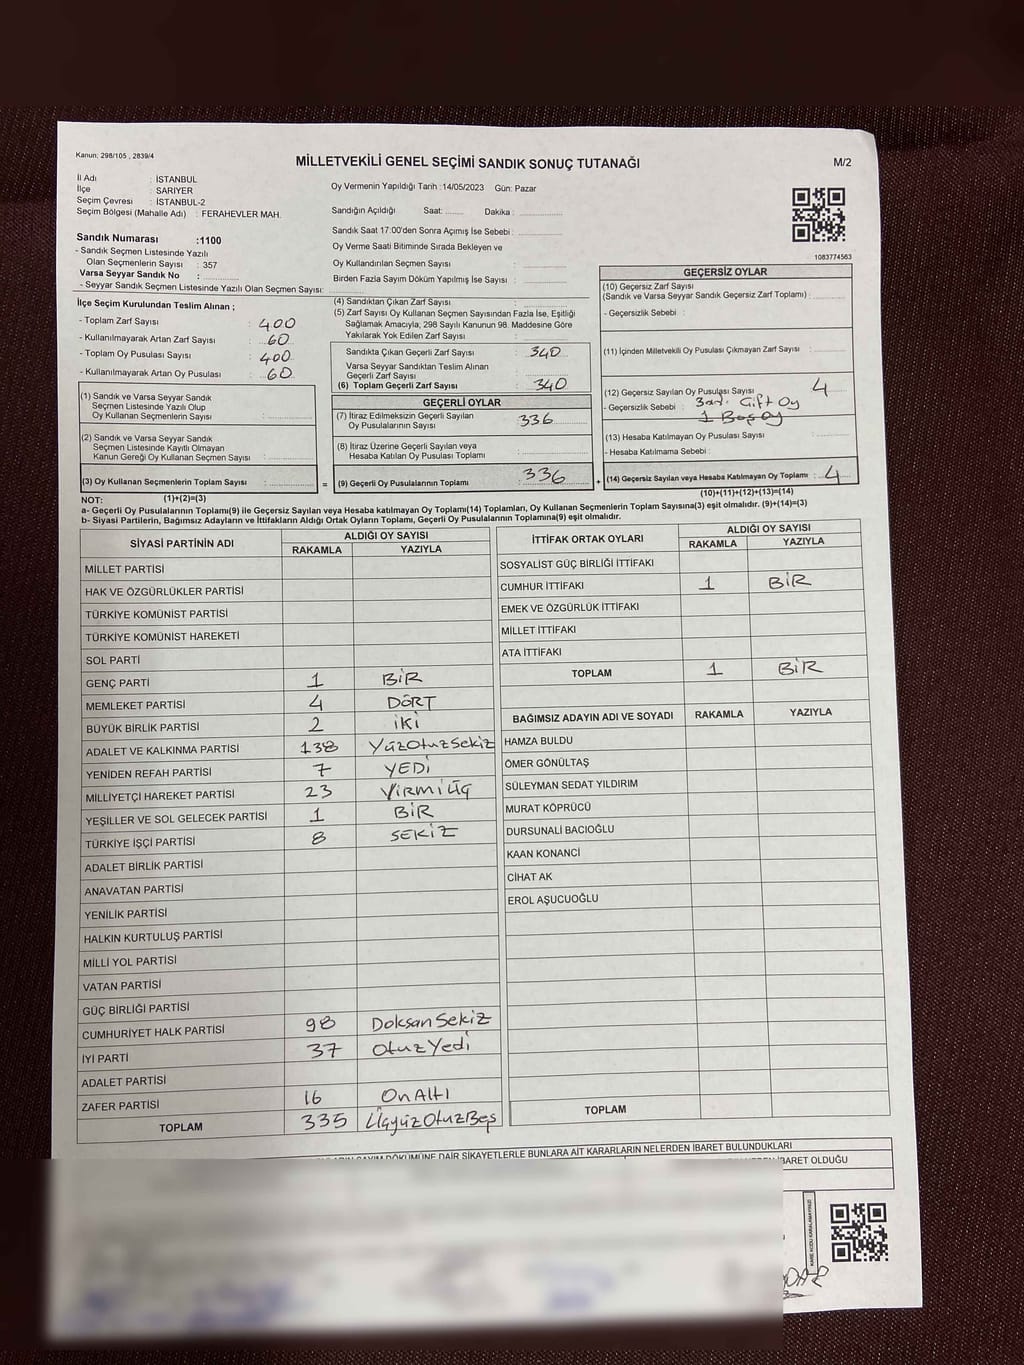 Kanun: 298/105 , 2839/4
MİLLETVEKİLİ GENEL SEÇİMİ SANDIK SONUÇ TUTANAĞI
M/2
İl Adı : İSTANBUL
İlçe : SARIYER
Seçim Çevresi : İSTANBUL-2
Seçim Bölgesi (Mahalle Adı) : FERAHEVLER MAH.
Oy Vermenin Yapıldığı Tarih :14/05/2023 Gün: Pazar
Sandığın Açıldığı Saat: ........ Dakika : ..............
Sandık Saat 17:00'den Sonra Açımış İse Sebebi : ..............
Oy Verme Saati Bitiminde Sırada Bekleyen ve
Oy Kullandırılan Seçmen Sayısı : ..............
Birden Fazla Sayım Döküm Yapılmış İse Sayısı : ..............
Sandık Numarası :1100
- Sandık Seçmen Listesinde Yazılı
Olan Seçmenlerin Sayısı : 357
Varsa Seyyar Sandık No : ..............
- Seyyar Sandık Seçmen Listesinde Yazılı Olan Seçmen Sayısı: ..............
1083774563
İlçe Seçim Kurulundan Teslim Alınan ;
- Toplam Zarf Sayısı : 400
- Kullanılmayarak Artan Zarf Sayısı : 60
- Toplam Oy Pusulası Sayısı : 400
- Kullanılmayarak Artan Oy Pusulası : 60
(1) Sandık ve Varsa Seyyar Sandık
Seçmen Listesinde Yazılı Olup
Oy Kullanan Seçmenlerin Sayısı : ..............
(2) Sandık ve Varsa Seyyar Sandık
Seçmen Listesinde Kayıtlı Olmayan
Kanun Gereği Oy Kullanan Seçmen Sayısı : ..............
(3) Oy Kullanan Seçmenlerin Toplam Sayısı : ..............
(1)+(2)=(3)
(4) Sandıktan Çıkan Zarf Sayısı : ..............
(5) Zarf Sayısı Oy Kullanan Seçmen Sayısından Fazla İse, Eşitliği
Sağlamak Amacıyla, 298 Sayılı Kanunun 98. Maddesine Göre
Yakılarak Yok Edilen Zarf Sayısı : ..............
Sandıkta Çıkan Geçerli Zarf Sayısı : 340
Varsa Seyyar Sandıktan Teslim Alınan
Geçerli Zarf Sayısı : ..............
(6) Toplam Geçerli Zarf Sayısı : 340
GEÇERLİ OYLAR
(7) İtiraz Edilmeksizin Geçerli Sayılan
Oy Pusulalarının Sayısı : 336
(8) İtiraz Üzerine Geçerli Sayılan veya
Hesaba Katılan Oy Pusulası Toplamı : ..............
= (9) Geçerli Oy Pusulalarının Toplamı : 336
GEÇERSİZ OYLAR
(10) Geçersiz Zarf Sayısı
(Sandık ve Varsa Seyyar Sandık Geçersiz Zarf Toplamı) : ..............
- Geçersizlik Sebebi :
(11) İçinden Milletvekili Oy Pusulası Çıkmayan Zarf Sayısı : ..............
(12) Geçersiz Sayılan Oy Pusulası Sayısı : 4
- Geçersizlik Sebebi : 3ad. Çift Oy
1 Boş oy
(13) Hesaba Katılmayan Oy Pusulası Sayısı : ..............
- Hesaba Katılmama Sebebi :
+ (14) Geçersiz Sayılan veya Hesaba Katılmayan Oy Toplamı : 4
(10)+(11)+(12)+(13)=(14)
NOT:
a- Geçerli Oy Pusulalarının Toplamı(9) ile Geçersiz Sayılan veya Hesaba katılmayan Oy Toplamı(14) Toplamları, Oy Kullanan Seçmenlerin Toplam Sayısına(3) eşit olmalıdır. (9)+(14)=(3)
b- Siyasi Partilerin, Bağımsız Adayların ve İttifakların Aldığı Ortak Oyların Toplamı, Geçerli Oy Pusulalarının Toplamına(9) eşit olmalıdır.
SİYASİ PARTİNİN ADI ALDIĞI OY SAYISI
RAKAMLA YAZIYLA
MİLLET PARTİSİ
HAK VE ÖZGÜRLÜKLER PARTİSİ
TÜRKİYE KOMÜNİST PARTİSİ
TÜRKİYE KOMÜNİST HAREKETİ
SOL PARTİ
GENÇ PARTİ 1 BİR
MEMLEKET PARTİSİ 4 DÖRT
BÜYÜK BİRLİK PARTİSİ 2 iKi
ADALET VE KALKINMA PARTİSİ 138 YüzOtuzSekiz
YENİDEN REFAH PARTİSİ 7 YEDİ
MİLLİYETÇİ HAREKET PARTİSİ 23 YİRMİ ÜÇ
YEŞİLLER VE SOL GELECEK PARTİSİ 1 BİR
TÜRKİYE İŞÇİ PARTİSİ 8 SEKİZ
ADALET BİRLİK PARTİSİ
ANAVATAN PARTİSİ
YENİLİK PARTİSİ
HALKIN KURTULUŞ PARTİSİ
MİLLİ YOL PARTİSİ
VATAN PARTİSİ
GÜÇ BİRLİĞİ PARTİSİ
CUMHURİYET HALK PARTİSİ 98 Doksan Sekiz
İYİ PARTİ 37 Otuz Yedi
ADALET PARTİSİ
ZAFER PARTİSİ 16 On Altı
TOPLAM 335 ÜçyüzOtuzBeş
İTTİFAK ORTAK OYLARI ALDIĞI OY SAYISI
RAKAMLA YAZIYLA
SOSYALİST GÜÇ BİRLİĞİ İTTİFAKI
CUMHUR İTTİFAKI 1 BİR
EMEK VE ÖZGÜRLÜK İTTİFAKI
MİLLET İTTİFAKI
ATA İTTİFAKI
TOPLAM 1 BİR
BAĞIMSIZ ADAYIN ADI VE SOYADI RAKAMLA YAZIYLA
HAMZA BULDU
ÖMER GÖNÜLTAŞ
SÜLEYMAN SEDAT YILDIRIM
MURAT KÖPRÜCÜ
DURSUNALİ BACIOĞLU
KAAN KONANCİ
CİHAT AK
EROL AŞUCUOĞLU
TOPLAM
DÖKÜMÜNE DAİR ŞİKAYETLERLE BUNLARA AİT KARARLARIN NELERDEN İBARET BULUNDUKLARI
İBARET OLDUĞU
KARE KODU KARALAMAYINIZ